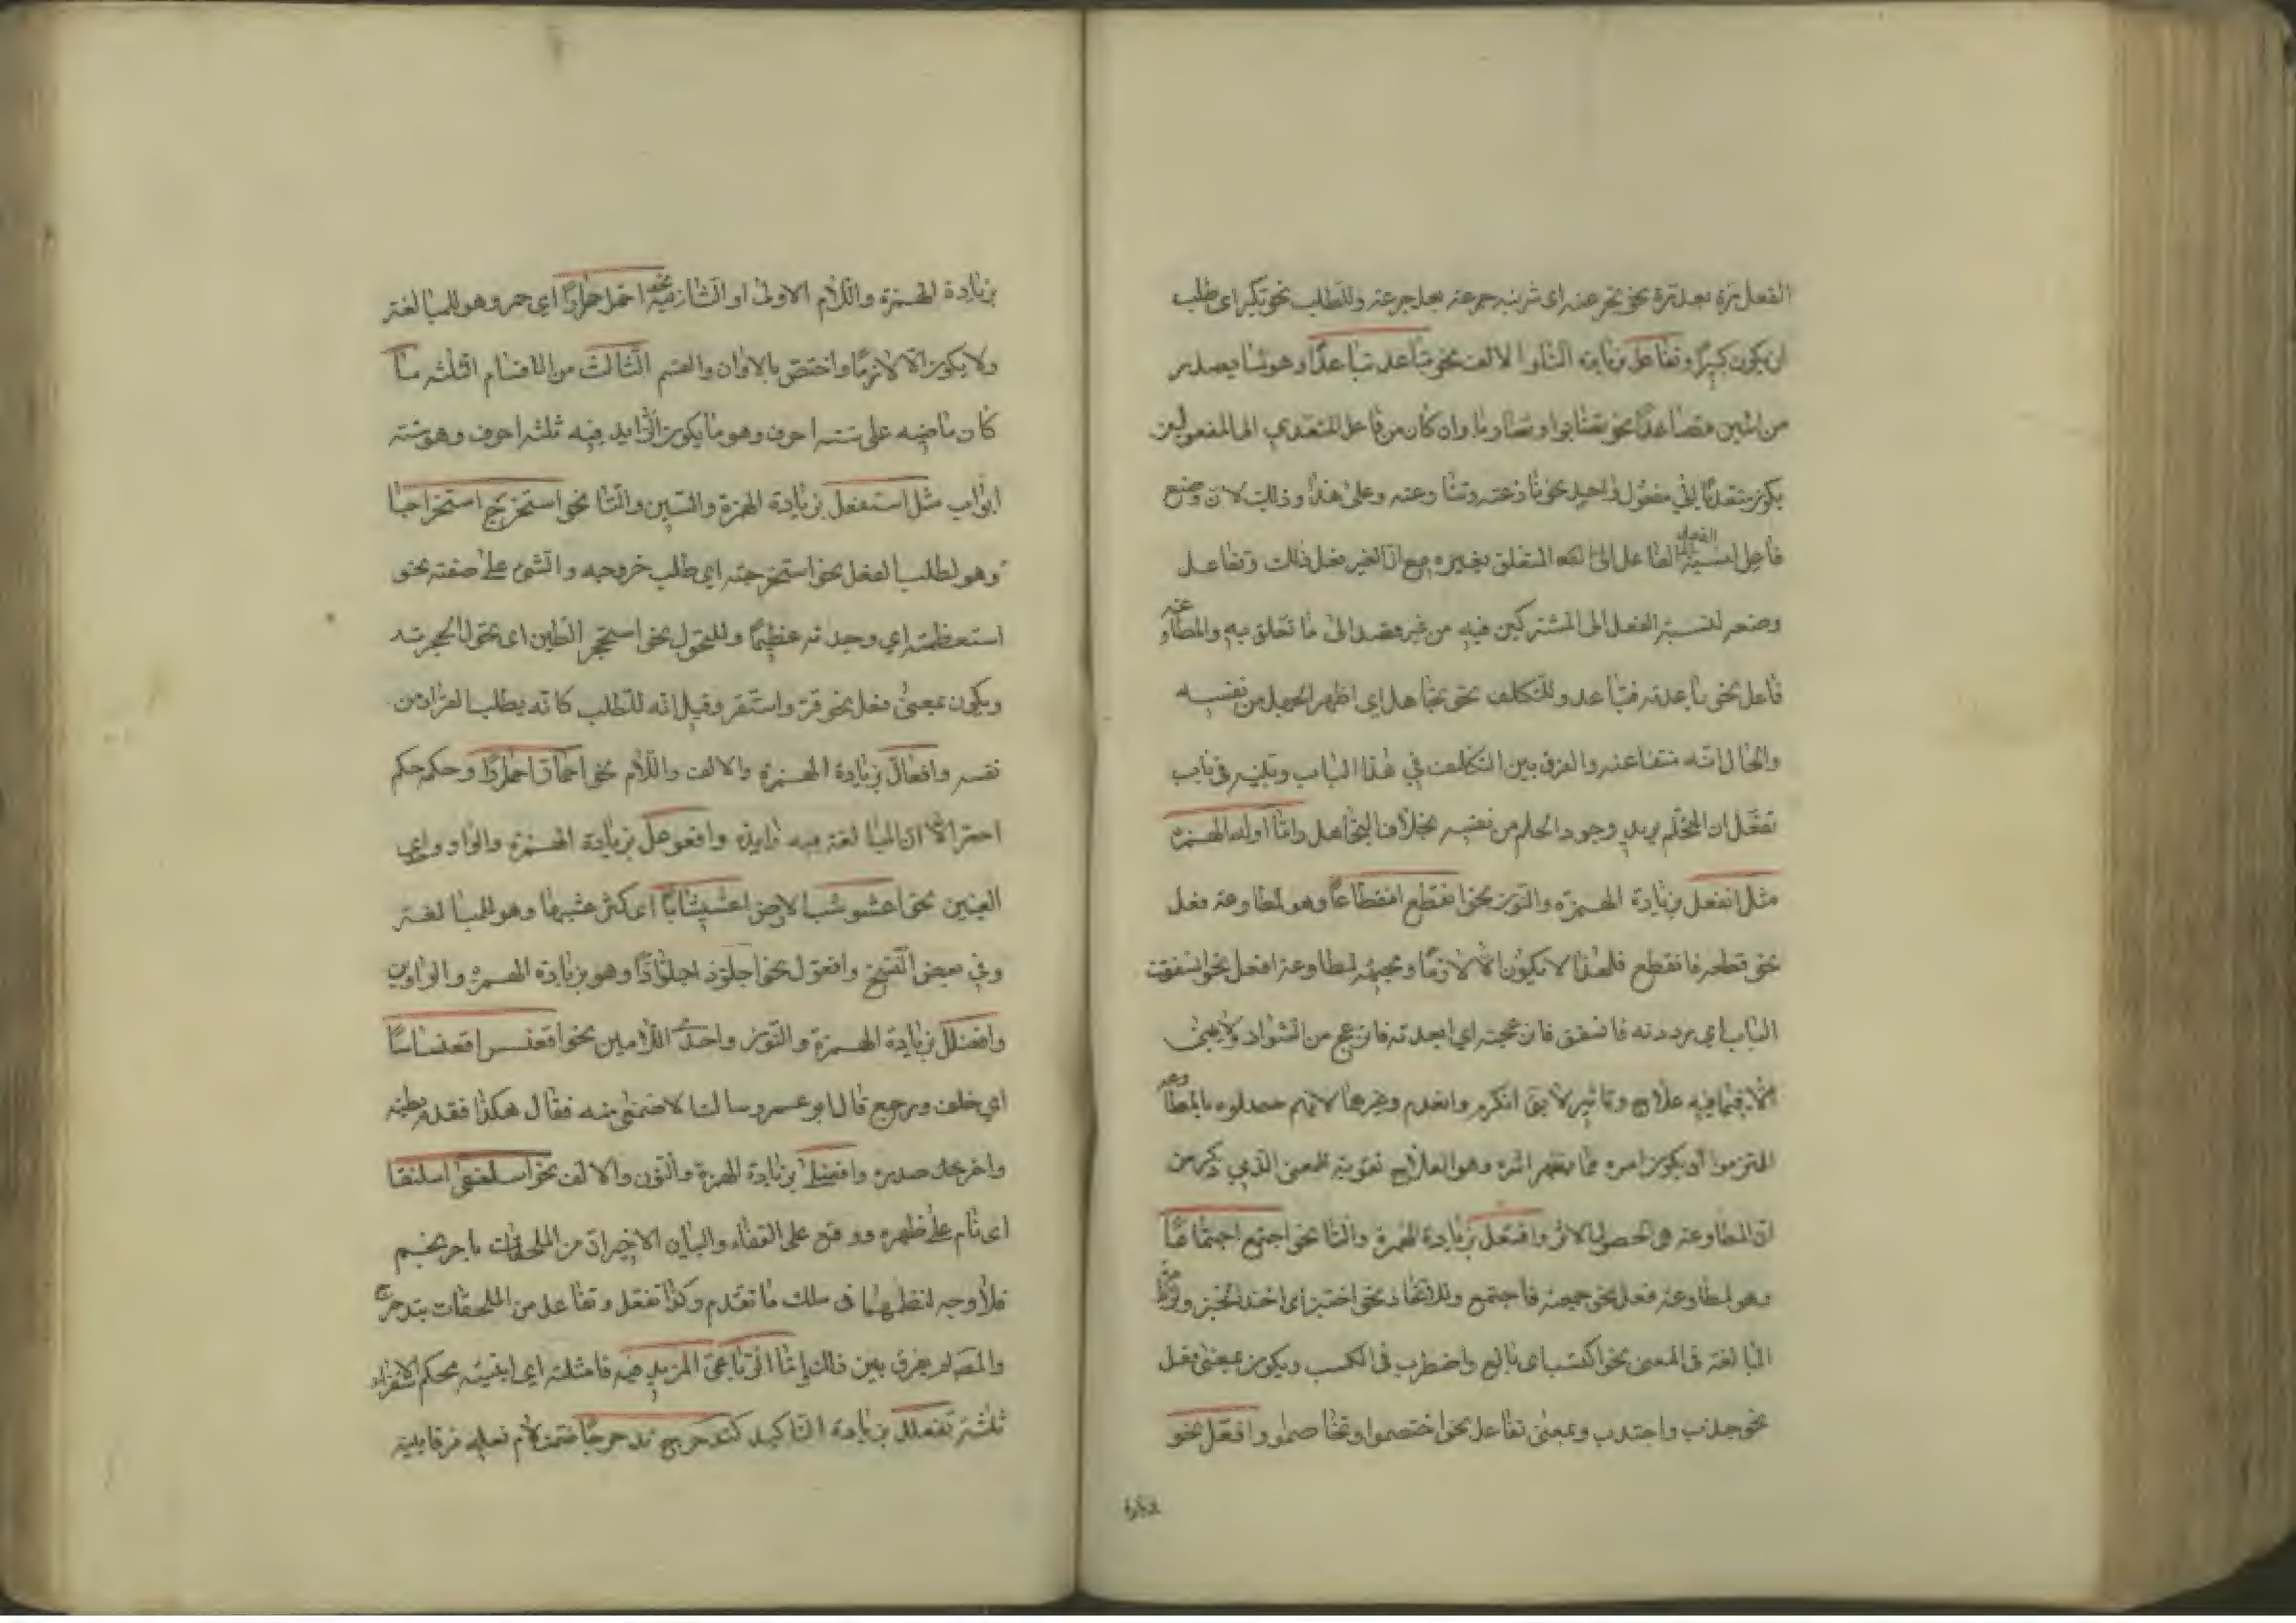 الفعل مرة بعد مرة نحو تجرعته اى شربته جرعة بعد جرعة وللطلب نحو تكبر اى طلب
ان يكون كبيرًا وتفاعل بزيادة التاء والالف نحو تباعد تباعدًا وهو لما يصدر
من اثنين فصاعدًا نحو تضاربوا وتضاربا وان كان من فاعل المتعدي الى المفعولين
يكون متعديًا الى مفعول واحد نحو نازعته وتنازعته وعلى هذا وذلك لان وضع
فاعل لنسبة الفعل الى الفاعل المتعلق بغيره مع ان الغير فعل ذلك وتفاعل
وضعه لنسبة الفعل الى المشتركين فيه من غير قصد الى ما تعلق به والمطاوعة
فاعل نحو باعدته فتباعد وللتكلف نحو تجاهل اى اظهر الجهل من نفسه
والحال انه منتف عنه والفرق بين التكلف في هذا الباب وبينه في باب
تفعل ان المتحلم يريد وجود الحلم من نفسه بخلاف المتجاهل واما اوله الهمزة
مثل انفعل بزيادة الهمزة والنون نحو انقطع انقطاعًا وهو لمطاوعة فعل
نحو قطعه فانقطع فلهذا لا يكون الا لازمًا ومجيئه لمطاوعة افعل نحو اسفقت
الباب اي رددته فانسفق وازعجته اي ابعدته فانزعج من الشواذ ولا يبنى
الا مما فيه علاج وتأثير لا يقال انكرم وانعدم وغيرها لانهم خصوه بالمطاوعة
التزموا ان يكون امره مما يظهر اثره وهو العلاج تقوية للمعنى الذي ذكر من
ان المطاوعة هي حصول الاثر وافتعل بزيادة الهمزة والتاء نحو اجتمع اجتماعًا
وهو لمطاوعة فعل نحو جمعته فاجتمع وللاتخاذ نحو اختبز اى اخذ الخبز ولزيادة
المبالغة فى المعنى نحو اكتسب اى بالغ واضطرب فى الكسب ويكون بمعنى فعل
نحو جذب واجتذب وبمعنى تفاعل نحو اختصموا وتخاصموا وافعل نحو
بزيادة
بزيادة الهمزة واللام الاولى او الثانية نحو احمر احمرارًا اي حمر وهو للمبالغة
ولا يكون الا لازمًا واختص بالالوان والقسم الثالث من الاقسام الثلثة ما
كان ماضيه على ستة احرف وهو ما يكون الزايد فيه ثلثة احرف وهو ستة
ابواب مثل استفعل بزيادة الهمزة والسين والتا نحو استخرج استخراجًا
وهو لطلب الفعل نحو استخرجته اي طلب خروجه والشئ على صفته نحو
استعظمته اي وجدته عظيمًا وللتحول نحو استحجر الطين اى تحول الى الحجرية
ويكون بمعنى فعل نحو قر واستقر وقيل انه للطلب كانه يطلب القرار من
نفسه وافعال بزيادة الهمزة والالف واللام نحو احمار احميرارًا وحكمه حكم
احمر الا ان المبالغة فيه زايدة وافعوعل بزيادة الهمزة والواو واحدى
العينين نحو اعشوشب الارض اعشيشابًا اى كثر عشبها وهو للمبالغة
وفي بعض النسخ وافعول نحو اجلوذ اجلواذًا وهو بزيادة الهمزة والواوين
وافعنلل بزيادة الهمزة والنون واحدى اللامين نحو اقعنسس اقعنساسًا
اي خلف ورجع قال ابو عمرو سالت الاصمعى عنه فقال هكذا فقدم بطنه
واخر صدره وافعنلى بزيادة الهمزة والنون والالف نحو اسلنقى اسلنقا
اى نام على ظهره ووقع على القفاء والبابان الاخيران من الملحقات باحرنجم
فلا وجه لنظمهما في سلك ما تقدم وكذا تفعل وتفاعل من الملحقات بتدحرج
والمصنف لم يفرق بين ذلك واما الرباعى المزيد فيه فامثلته اي ابنيته بحكم الاستقراء
ثلثة تفعلل بزيادة التا كتدحرج تدحرجًا ضمت لام فعله فرقا بينه